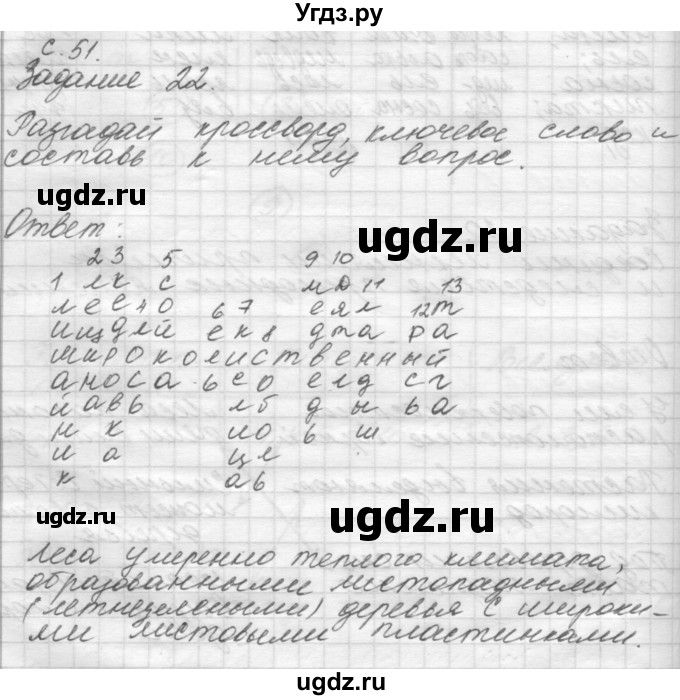 Угдз.ру
с. 51.
Задание 22.
Разгадай кроссворд, ключевое слово и
составь к нему вопрос.
ugdz.ru
ugdz.ru
Ответ:
2 3 5 9 10
1 л к с м д 11 13
л е с 4 о 6 7 е я л 12 т
и щ д л й е к 8 д т а р а
ш и р о к о л и с т в е н н ы й
а н о с а ь с о е л д с г
й а в ь л б д ы ь а
н к и о ь ш
и а ц л
к а ь
ugdz.ru
ugdz.ru
Леса умеренно теплого климата,
образованными листопадными
(летнезелеными) деревья с широки-
ми листовыми пластинками.
ugdz.ru
ugdz.ru